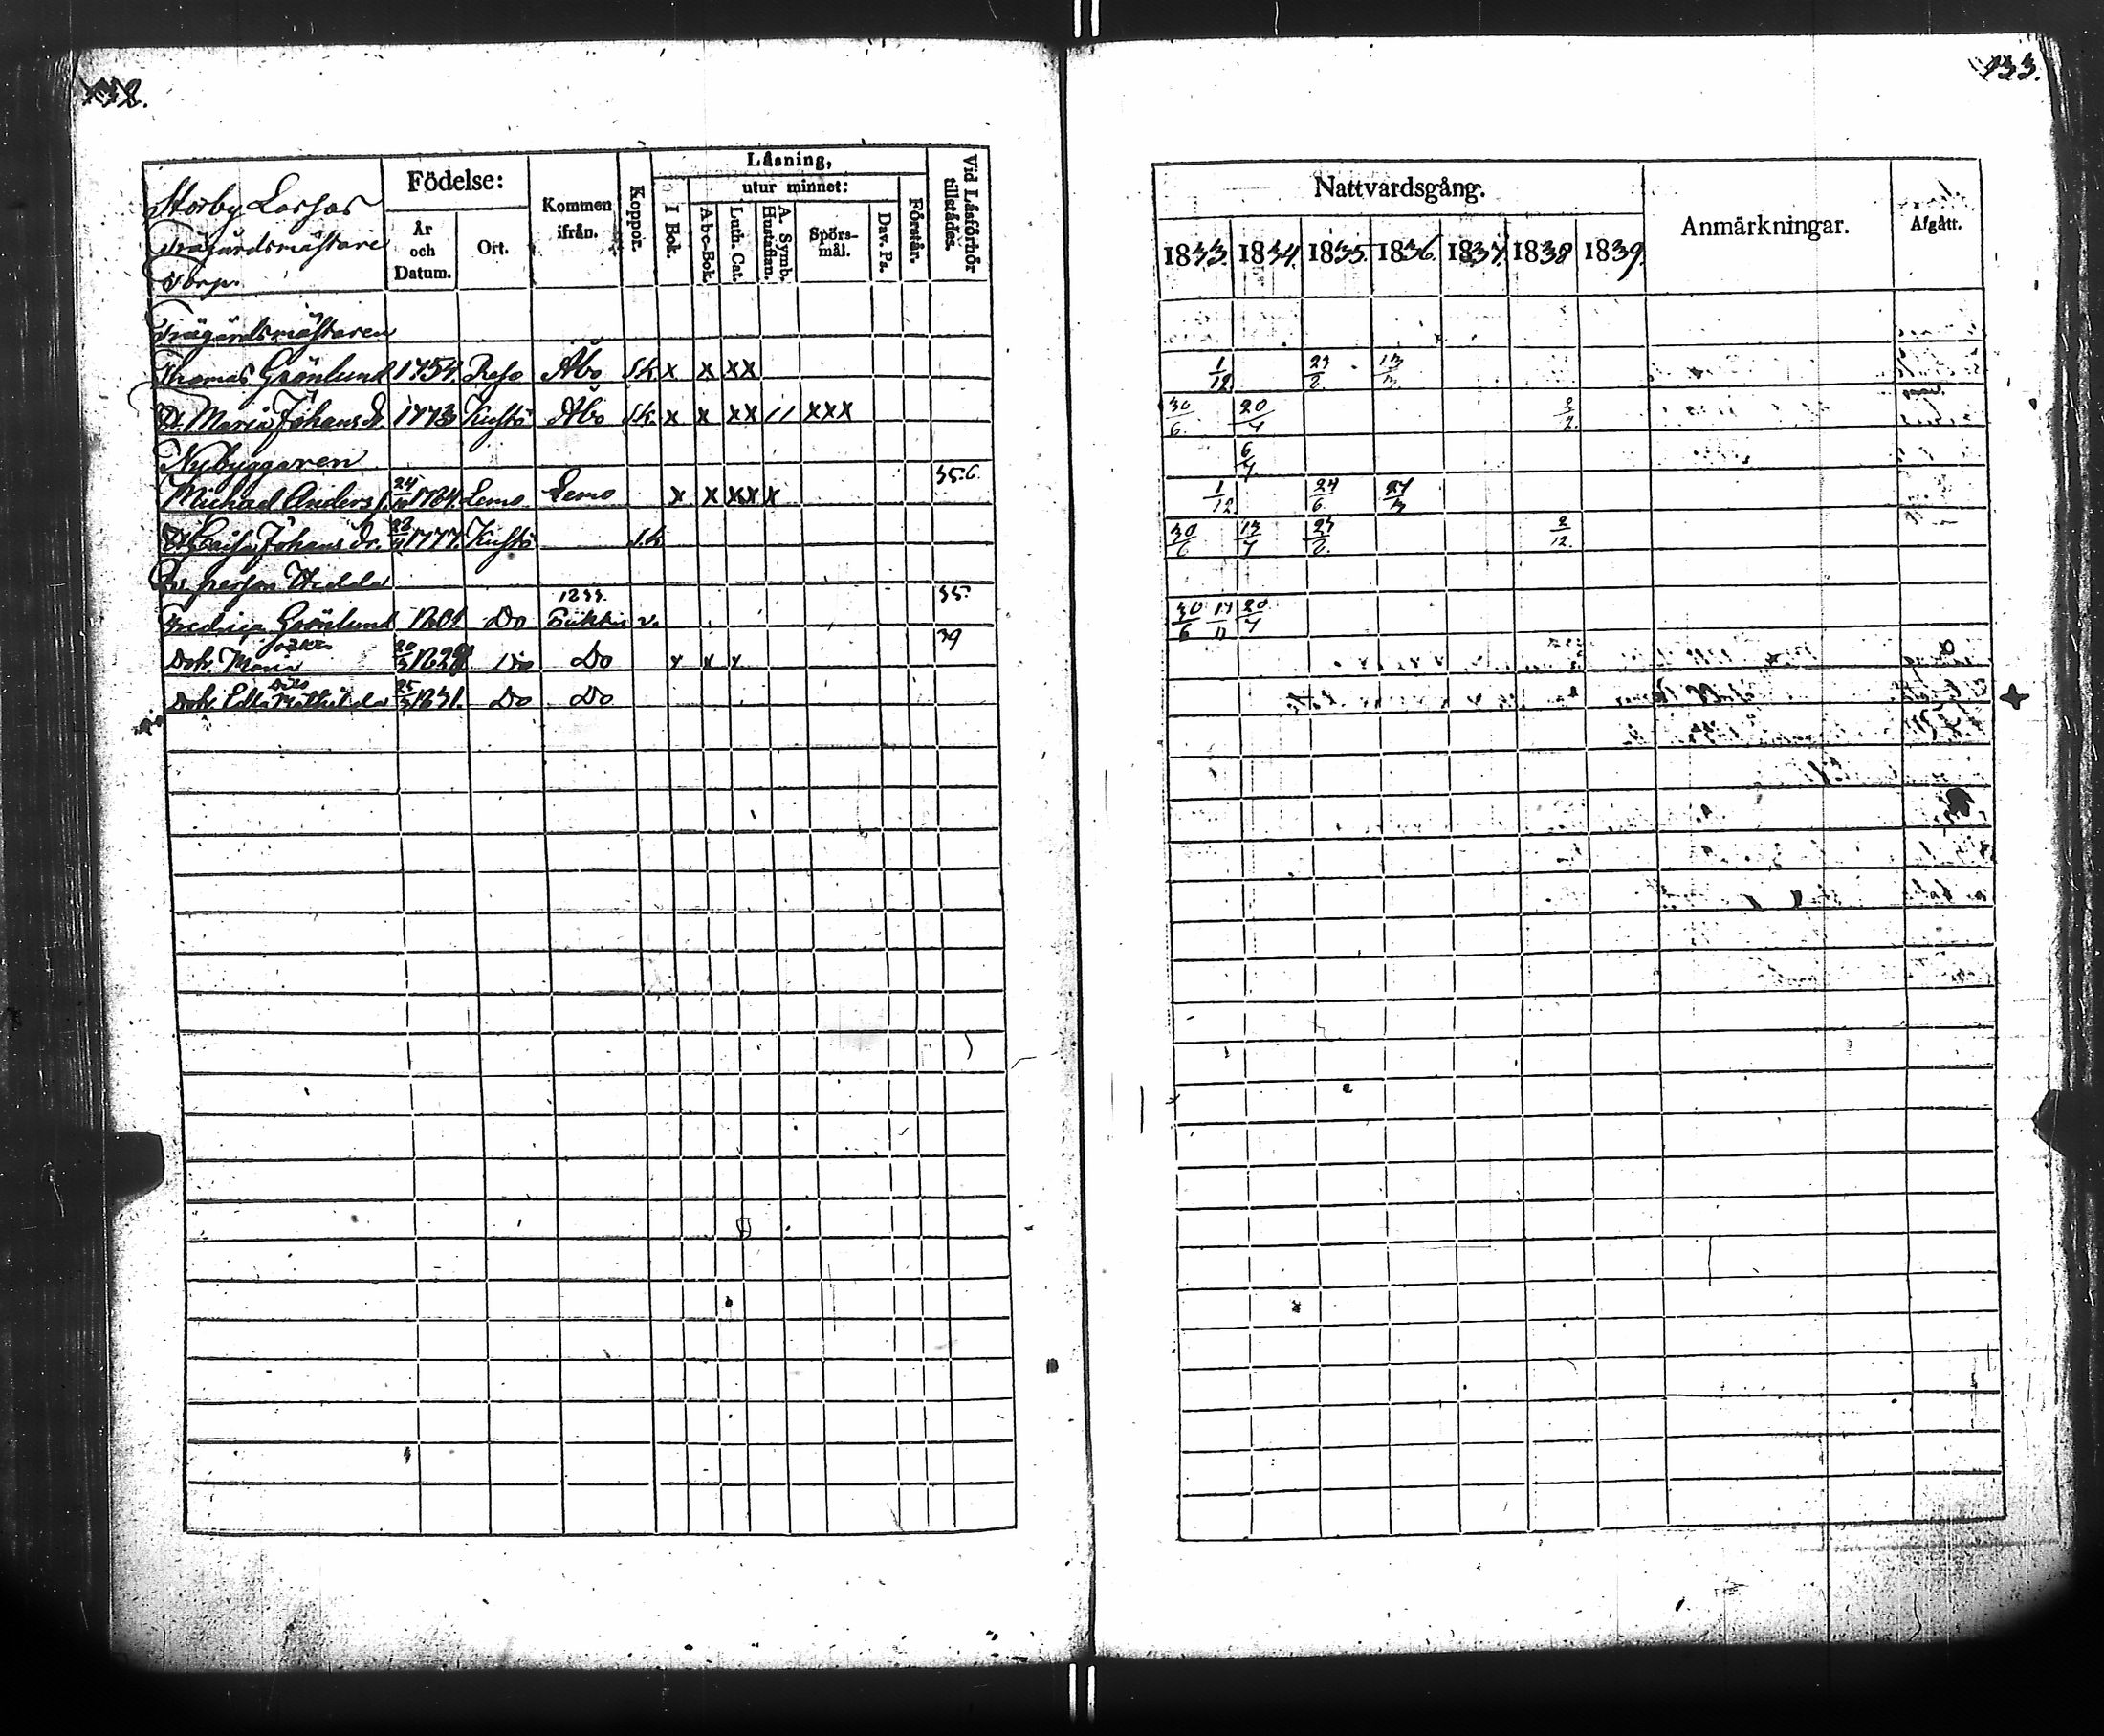 132.
133.
Storby Lassas
Trägårdsmästare
Torp.
Födelse:
År och Datum.
Ort.
Kommen ifrån.
Koppor.
Läsning,
I Bok.
utur minnet:
Abc-Bok.
Luth. Cat.
A. Symb. Hustaflan.
Spörs-mål.
Dav. Ps.
Förstår.
Vid Läsförhör tillstädes.
Nattvardsgång.
1833. 1834. 1835. 1836. 1837. 1838 1839.
Anmärkningar.
Afgått.
Trägårdsmästaren
Thomas Grönlund 1754. Reso Åbo s.k. x x xx 1/12 23/2 13/3
H. Maria Johans dr. 1773 Kustö Åbo s.k. x x xx 11 xxx 30/6 20/4 2/2
Nybyggaren 6/4
Michael Anders s. 24/10 1764. Lemo Lemo x x xx x 35.6. 1/12 24/6 24/3
H. Caisa Johans dr. 1777. Kustö s.k 30/6 13/4 23/2 2/12.
Qv. person Hedda
Fredrica Grönlund 1801. Do 1833. Piikkis v. 35. 30/6 17/11 20/4
Dotr. Maria oäkta 20/3 1828 Do Do x x x 39
Dotr. Edla Mathilda 25/3 1831. Do Do